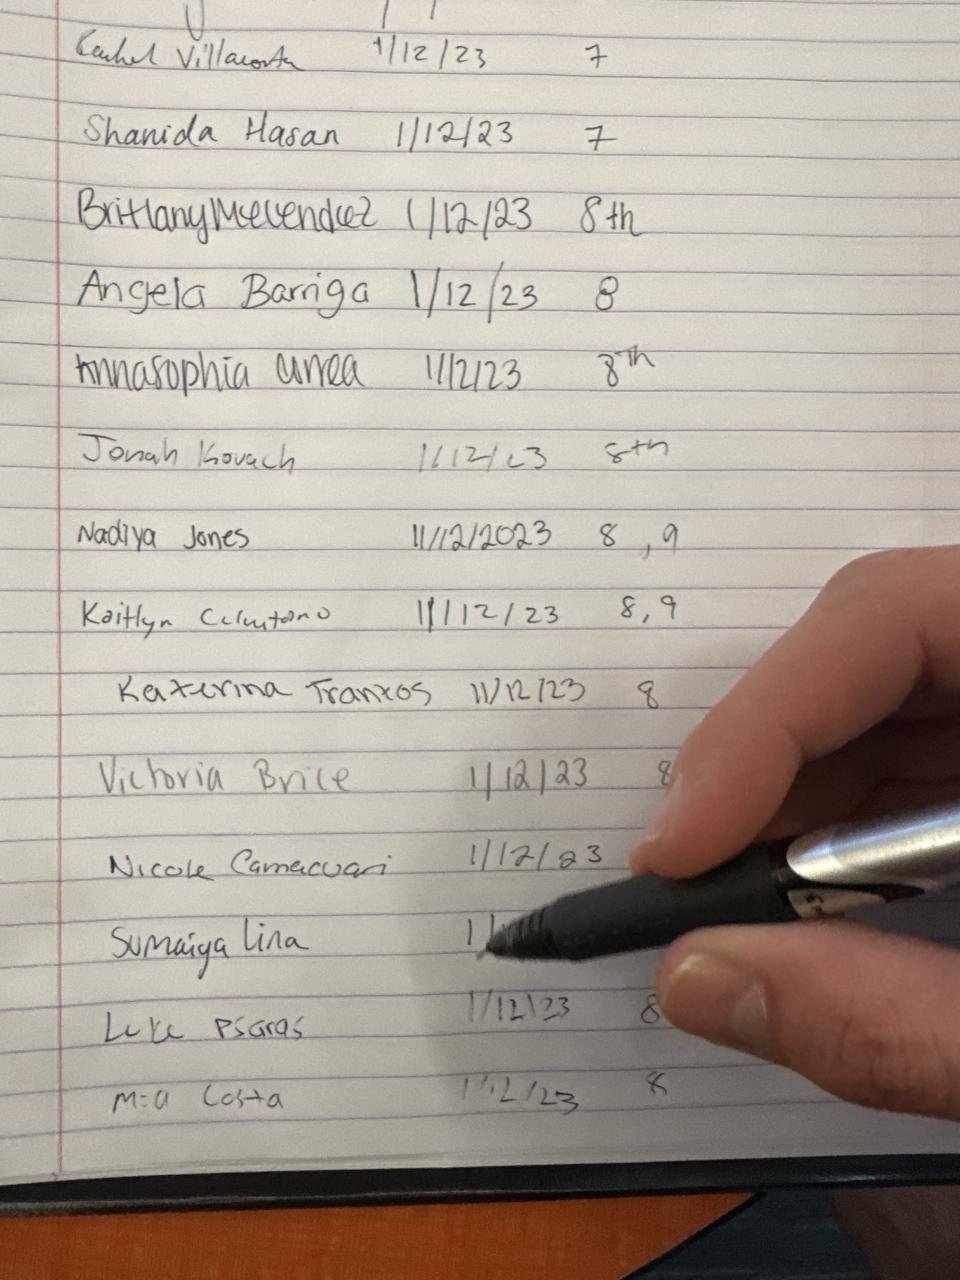 Rachel Villacorta 1/12/23 7
Shanida Hasan 1/12/23 7
Brittany Melendez 1/12/23 8th
Angela Barriga 1/12/23 8
Annasophia Urrea 1/12/23 8th
Jonah Kovach 1/12/23 8th
Nadiya Jones 11/12/2023 8, 9
Kaitlyn 11/12/23 8, 9
Katerina 11/12/23 8
Victoria Brice 1/12/23 8
Nicole 1/12/23
Sumaiya Lina
Luke Psaras 1/12/23 8
Mia Costa 1/12/23 8